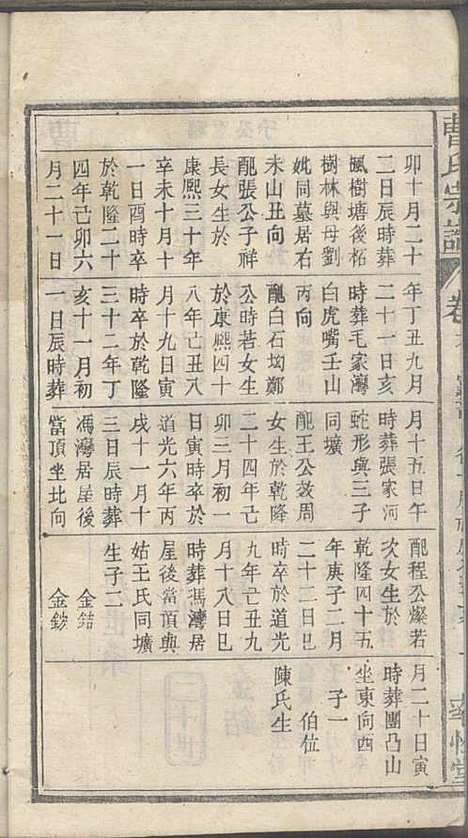 曹氏宗譜
卷
卯十月二十
三日辰時葬
楓樹塘後柘
樹林與母劉
妣同墓居右
未山丑向
配張公子祥
長女生於
康熙三十年
辛未十月十
一日酉時卒
於乾隆二十
四年己卯六
月二十一日
年丁丑九月
二十一日亥
時葬毛家灣
白虎嘴壬山
丙向
配白石坳鄭
公時若女生
於康熙四十
八年己丑八
月十九日寅
時卒於乾隆
三十二年丁
亥十一月初
一日辰時葬
月十五日午
時葬張家河
蛇形與三子
同壙
配王公效周
女生於乾隆
二十四年己
卯三月初一
日寅時卒於
道光六年丙
戌十一月十
三日辰時葬
馮灣居屋後
當頂坐北向
配程公燦若
次女生於
乾隆四十五
年庚子二月
二十三日巳
時卒於道光
九年己丑九
月十八日巳
時葬馮灣居
屋後當頂與
姑王氏同壙
生子二
金銡
金鈔
月二十日寅
時葬團凸山
坐東向西
子一
伯位
陳氏生